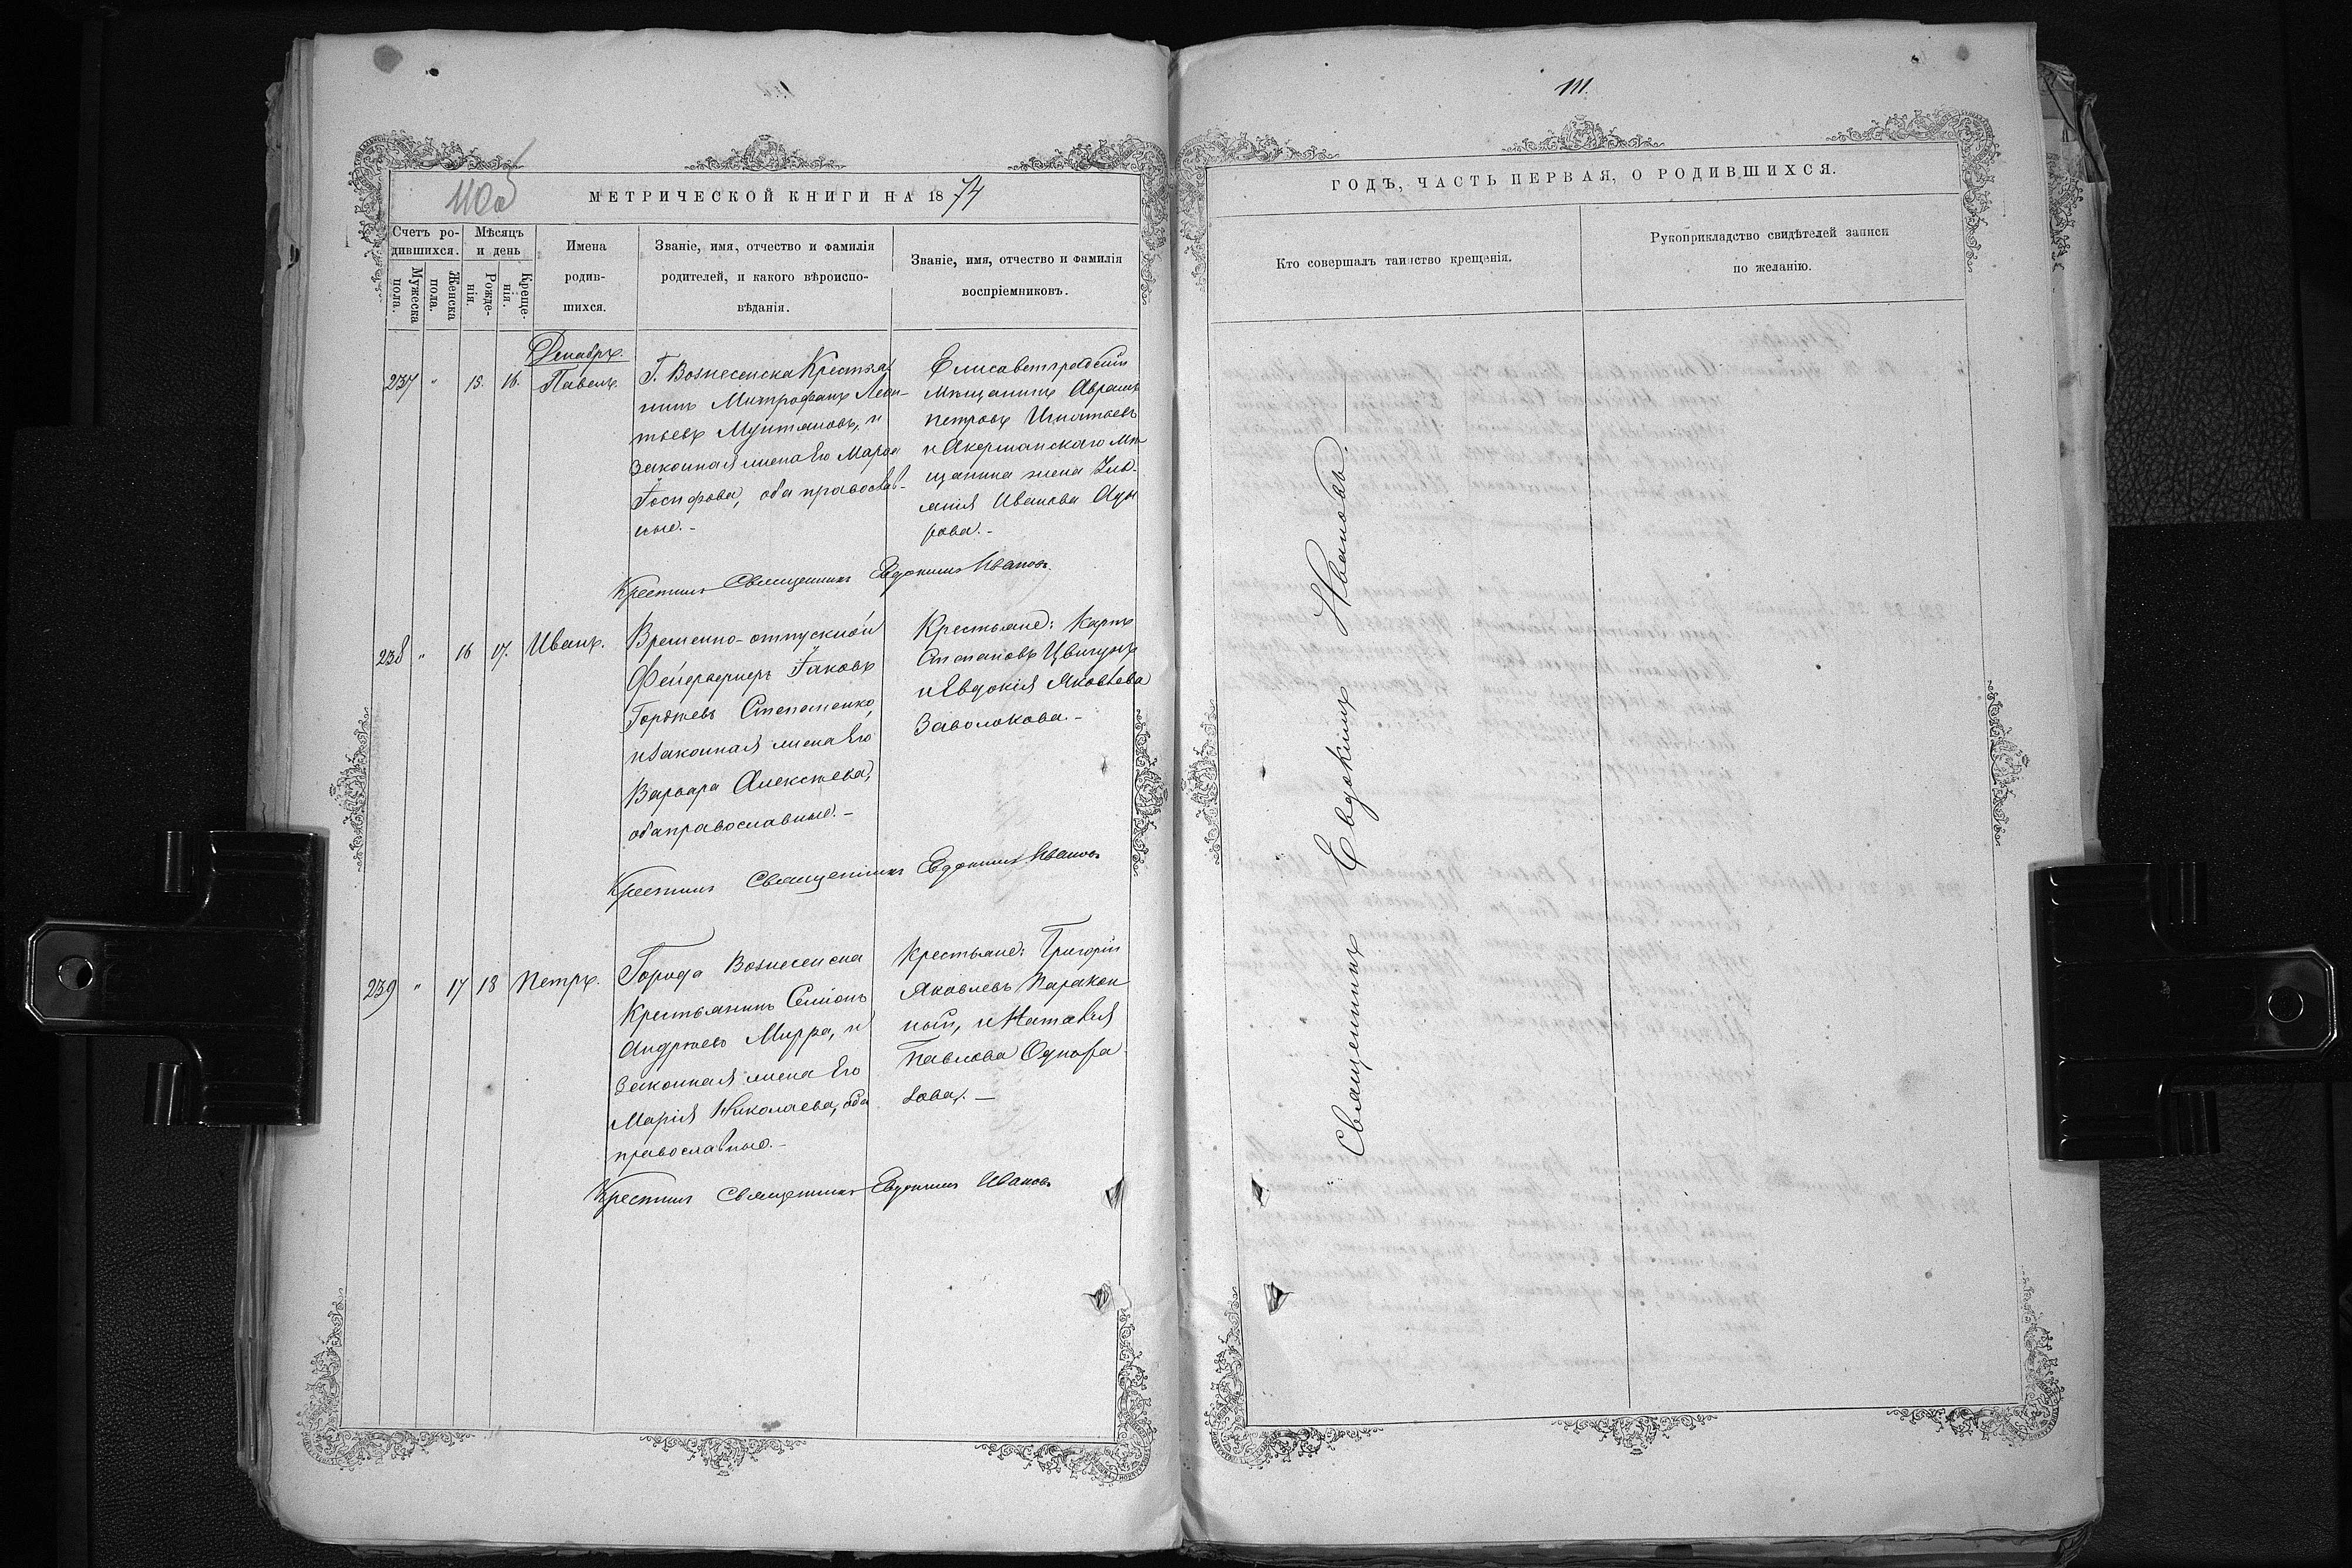 110б
МЕТРИЧЕСКОЙ КНИГИ НА 1874
Счетъ ро-
дившихся.
Мѣсяцъ
и день
Мужеска
пола.
Женска
пола.
Рожде-
нія.
Креще-
нія.
Имена
родив-
шихся.
Званіе, имя, отчество и фамилія
родителей, и какого вѣроиспо-
вѣданія.
Званіе, имя, отчество и фамилія
воспріемниковъ.
Декабрь.
237 " 15. 16. Павелъ.
Г. Вознесенска Крестья
нинъ Митрофанъ Леон-
тьевъ Мунтяновъ, и
законная жена Его Марѳа
Іосифова, оба православ-
ные.-
Елисаветградскій
Мѣщанинъ Авраамъ
Петровъ Игнатьевъ
и Акерманскаго Мѣ
щанина жена
Иванова
рова.-
Крестилъ Священникъ Евдокимъ Ивановъ
238 " 16 17. Иванъ.
Временно-отпускной
Фейерверкеръ Іаковъ
Гордѣевъ Степаненко,
и законная жена Его
Варвара Алексѣева,
оба православные.-
Крестьяне: Карпъ
Степановъ Цвигунъ
и Евдокія Яковлева
Заволокова.-
Крестилъ Священникъ Евдокимъ Ивановъ
239 " 17 18 Петръ.
Города Вознесенска
Крестьянинъ Симіонъ
Андреевъ Мирра, и
законная жена Его
Марія Николаева, оба
православные.-
Крестьяне: Григорій
Яковлевъ Паракон
ный, и Наталія
Павлова Однора
лова.-
Крестилъ Священникъ Евдокимъ Ивановъ
111.
ГОДЪ, ЧАСТЬ ПЕРВАЯ, О РОДИВШИХСЯ.
Кто совершалъ таинство крещенія.
Рукоприкладство свидѣтелей записи
по желанію.
Священникъ Евдокимъ Ивановъ.